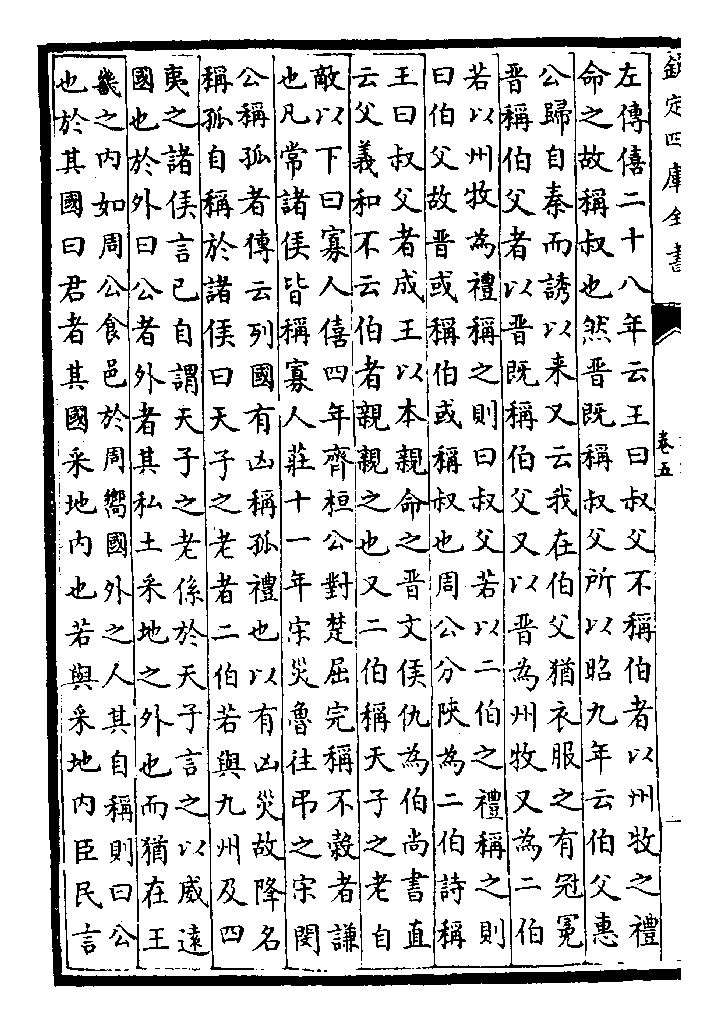 欽定四庫全書
卷五
左傳僖二十八年云王曰叔父不稱伯者以州牧之禮
命之故稱叔也然晋既稱叔父所以昭九年云伯父惠
公歸自秦而誘以来又云我在伯父猶衣服之有冠冕
晋稱伯父者以晋既稱伯父又以晋為州牧又為二伯
若以州牧為禮稱之則曰叔父若以二伯之禮稱之則
曰伯父故晋或稱伯或稱叔也周公分陜為二伯詩稱
王曰叔父者成王以本親命之晋文侯仇為伯尚書直
云父義和不云伯者親親之也又二伯稱天子之老自
敵以下曰寡人僖四年齊桓公對楚屈完稱不穀者謙
也凡常諸侯皆稱寡人莊十一年宋災魯往弔之宋閔
公稱孤者傳云列國有凶稱孤禮也以有凶災故降名
稱孤自稱於諸侯曰天子之老者二伯若與九州及四
夷之諸侯言己自謂天子之老係於天子言之以威遠
國也於外曰公者外者其私土采地之外也而猶在王
畿之内如周公食邑於周嚮國外之人其自稱則曰公
也於其國曰君者其國采地内也若與采地内臣民言